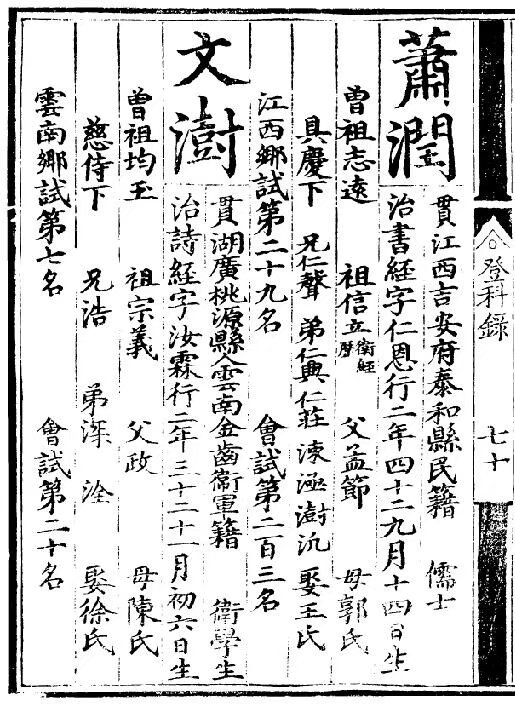 登科錄 七十
蕭潤
貫江西吉安府泰和縣民籍 儒士
治書經字仁恩行二年四十二九月十四日生
曾祖志遠 祖信立 衛經歷 父孟節 母郭氏
具慶下 兄仁聲 弟仁興仁莊涑澍沆 娶王氏
江西鄉試第二十九名 會試第二百三名
文澍
貫湖廣桃源縣人雲南金齒衛軍籍 衛學生
治詩經字汝霖行二年三十二十一月初六日生
曾祖均玉 祖宗義 父政 母陳氏
慈侍下 兄浩 弟深 洤 娶徐氏
雲南鄉試第七名 會試第二十名